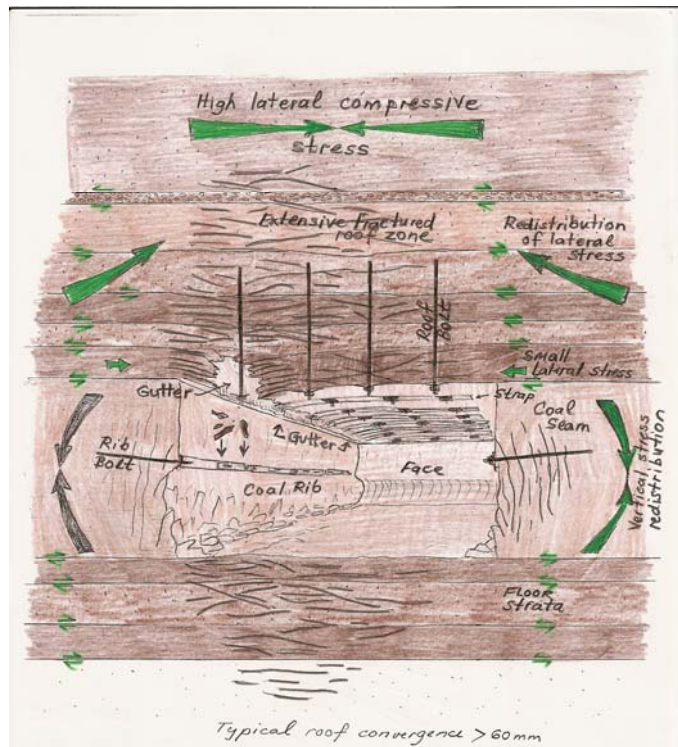 High lateral compressive
stress
Extensive fractured
roof zone
Redistribution
of lateral
stress
Roof
Bolt
Small
Lateral stress
Gutter
Strap
Gutter
Coal
Seam
Rib
Bolt
Face
Coal Rib
Vertical stress
redistribution
FLOOR
strata
Typical roof convergence > 60mm